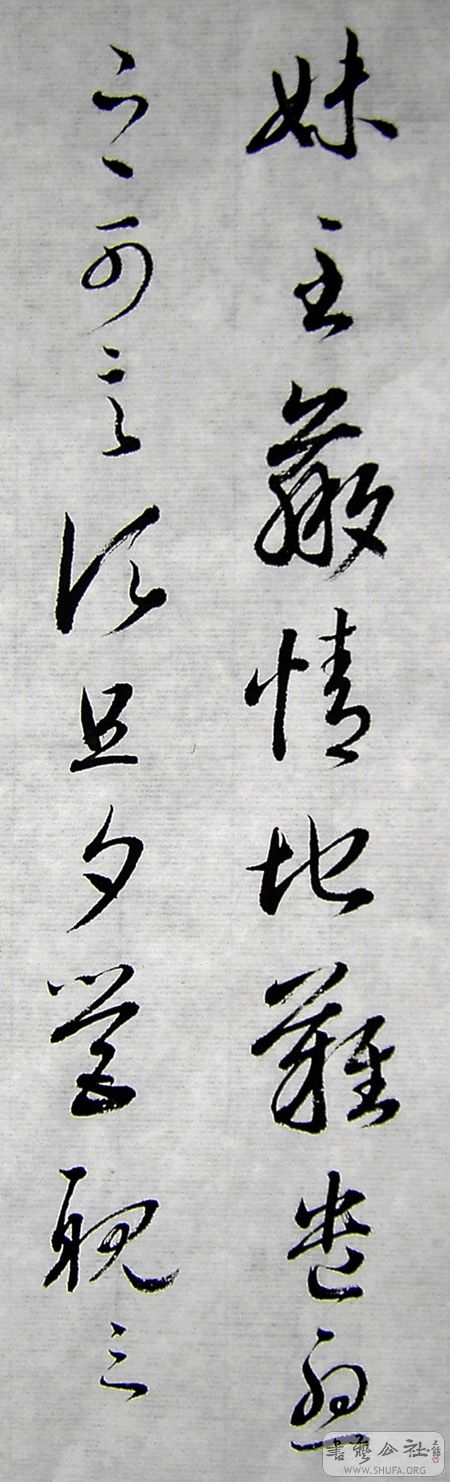 妹至羸情地難遣憂
之可言須旦夕營視之
書藝公社
WWW.SHUFA.ORG